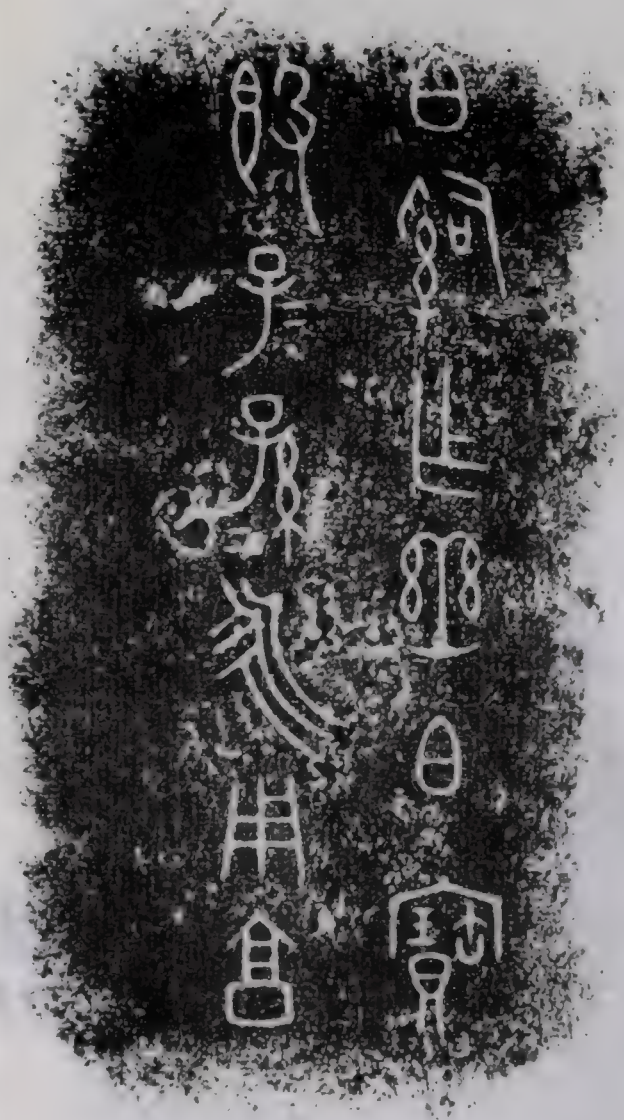 白乍白寶
𣪘子=孫=永用亯